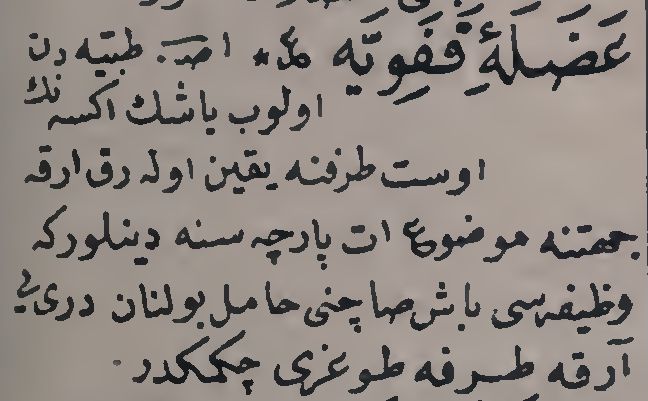 عَضَلَهٔ قَفَوِيَّه مع٭ اصـ. طبيه دن
اولوب باشك اكسه نك
اوست طرفنه يقين اوله رق ارقه
جهتنه موضوع ات پارچه سنه دينلوركه
وظيفه سى باش صاچنى حامل بولنان درى يى
آرقه طرفه طوغرى چكمكدر